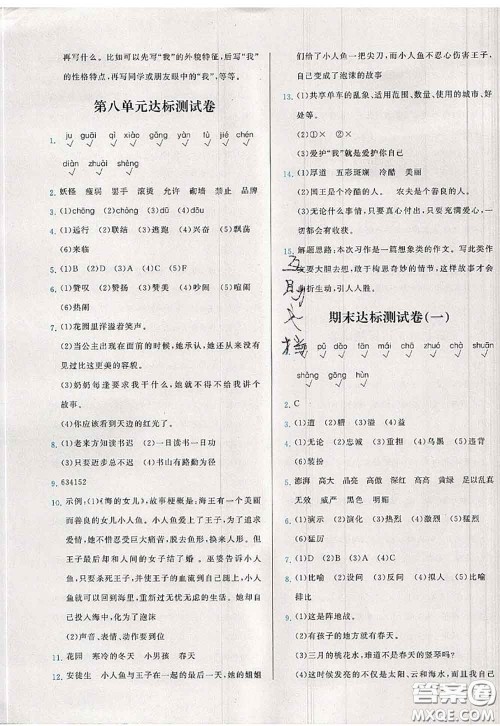 再写什么。比如可以先写“我”的外貌特征，后写“我”
的性格特点，再写同学或朋友眼中的“我”，等等。
第八单元达标测试卷
1. jù guāi qì xiào gāng yàn fù jié chén
diàn zhuài shèng
2. 妖怪 瘦弱 罢手 滚烫 允许 砌墙 禁止 品牌
3. (1)chōng (2)chǎng (3)dū (4)dōu
4. (1)远行 (2)联结 (3)逃跑 (4)兴奋 (5)飘荡
(6)来临
5. (1)B (2)D (3)A (4)C
6. (1)赞叹 (2)赞赏 (3)赞美 (4)吵吵 (5)喧闹
(6)热闹
7. (1)花园里洋溢着笑声。
(2)当公主出现在面前的时候，她承认，她还从来没有
见过比这更美丽的形象。
(3)奶奶每逢要求我干什么的时候，我就请她讲个
故事。
(4)你应该看到天边的红光了。
8. (1)老来方知读书迟 (2)一日读书一日功
(3)只要迈步总不迟 (4)书山有路勤为径
9. 634152
10. 示例：(1)《海的女儿》，故事梗概是：海王有一个美丽
而善良的女儿小人鱼。小人鱼爱上了王子，为了追求
爱情幸福，她不惜忍受巨大痛苦，脱去鱼形，换来人形。
但王子最后却和人间的女子结了婚。巫婆告诉小人
鱼，只要杀死王子，并使王子的血流到自己腿上，小人
鱼就可以回到海里，重新过无忧无虑的生活。可她却自
己投入海中，化为泡沫
(2)声音、表情、动作
11. 花园 寒冷的冬天 小男孩 春天
12. 安徒生 小人鱼与王子在一起的最后一夜，她的姐姐
们给了小人鱼一把尖刀，而小人鱼不忍心伤害王子，
自己变成了泡沫的故事
13. (1)共享单车的乱象、适用范围、数量、使用的城市、好
处等。
(2)①× ②×
(3)爱护“我”就是爱护你自己
14. (1)厚道 五彩斑斓 冷酷 美丽
(2)国王是个冷酷的人。 农夫是个善良的人。
(3)无论什么事情，只要真心付出，有付出，就一定会
有收获。
15. 解题思路：本次习作是一篇想象类的作文。写此类作
文要大胆去想，敢于构思奇妙的情节，这样故事才会
曲折生动，引人入胜。
互助文档
期末达标测试卷(一)
pū dào lǎn mái chá shú cháo
shàng gōng hùn
2. C
3. (1)道 (2)腊 (3)溢 (4)益
4. (1)无论 (2)忠诚 (3)重担 (4)乌黑 (5)诧异
(6)装扮
5. 澎湃 高大 高亮 高傲 深红 高高 黄绿 足以乱真
无效 威严 黑色 明亮
6. (1)演示 (2)演化 (3)热烈 (4)激烈 (5)剧烈
(6)猛厉
7. (1)D (2)B (3)A (4)C
8. (1)比喻 (2)反问 (3)设问 (4)拟人 (5)比喻
排比
9. (1)这是阵地战。
(2)有孩子的地方就有春天。
(3)三月的桃花水，难道不是春天的竖琴吗？
(4)这时候发亮的不仅是太阳，云和海水，而且我自己
答案圈
MXQE.COM